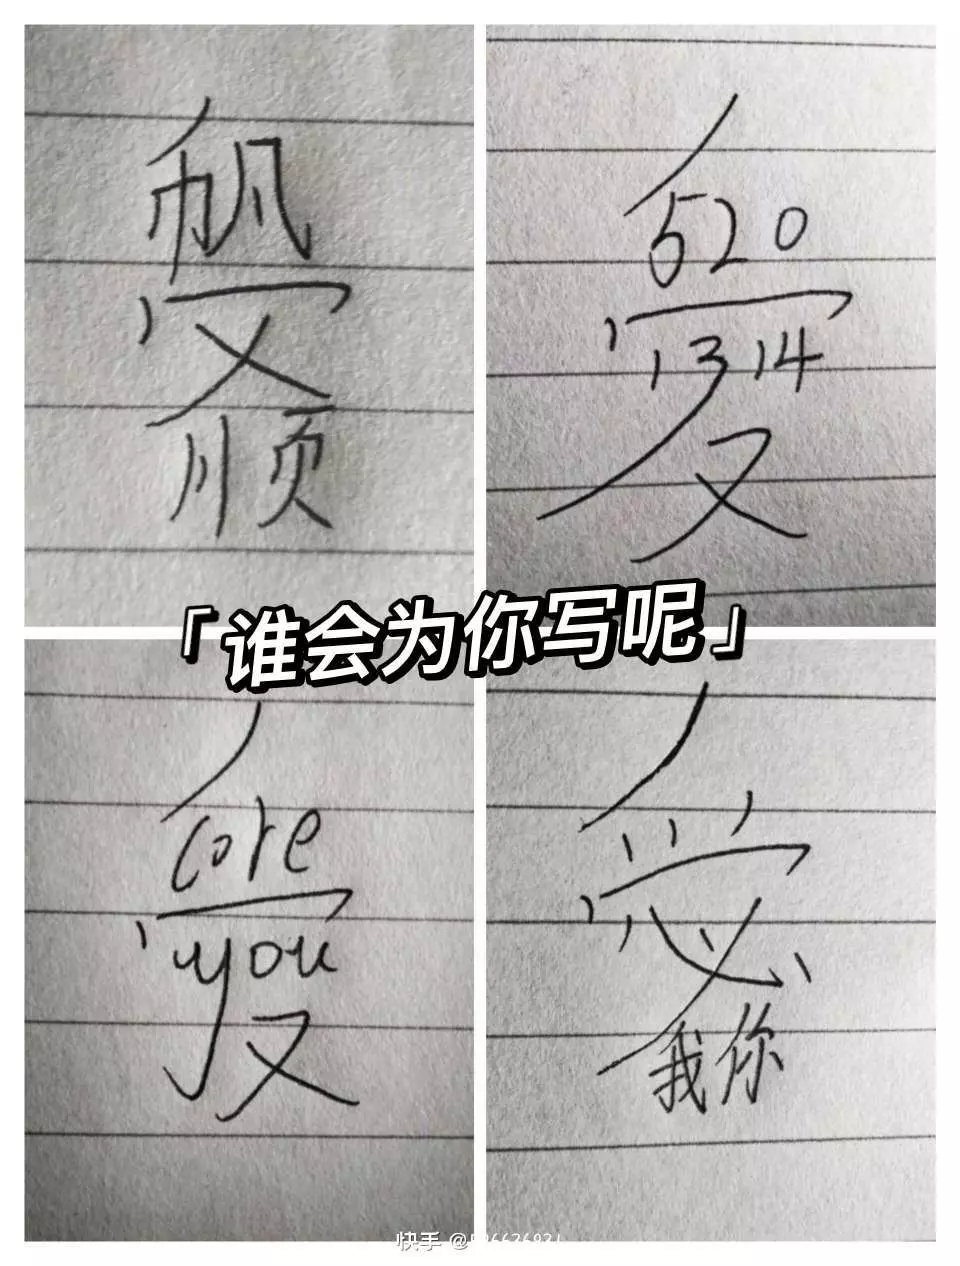 帆
顺
520
1314
又
「谁会为你写呢」
core
you
又
必
我你
快手